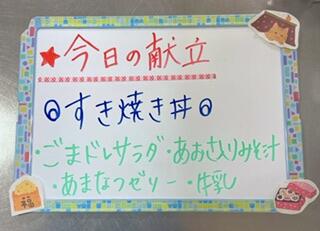 ★今日の献立
◎すき焼き丼◎
・ごまドレサラダ・あおさ入りみそ汁
・あまなつゼリー・牛乳
福